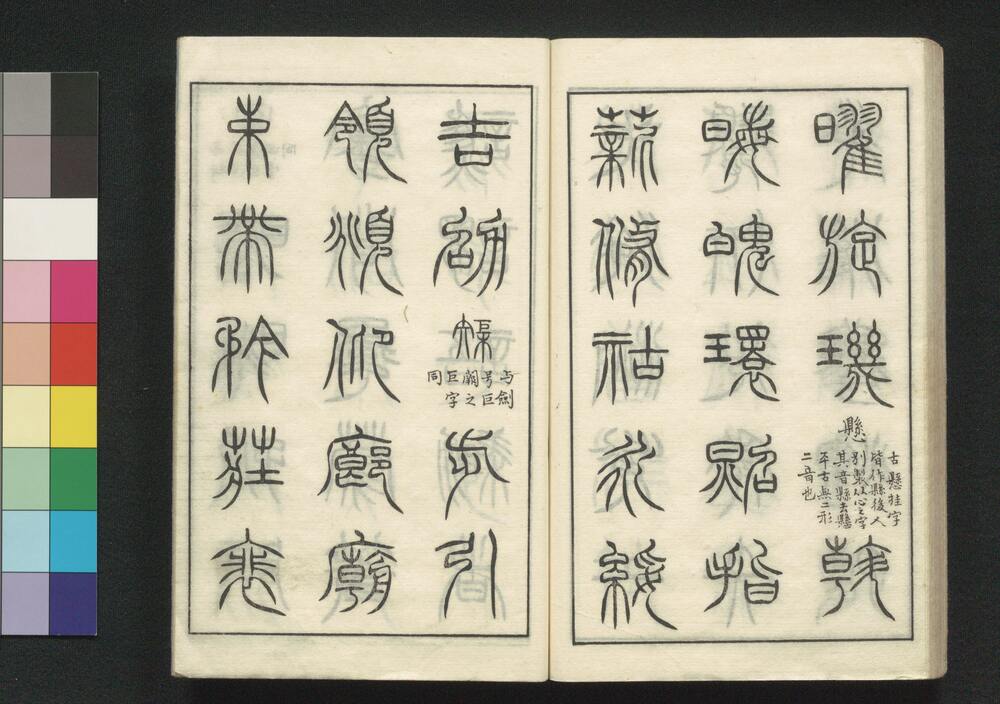 曜旋璣懸
古懸挂字
皆作縣後人
別製从心之字
其音縣去懸
平古無二形
二音也
斡
晦魄環照指
薪修祜永綏
吉劭榘
与劍
号巨
闕之
巨字
同
步引
領頫仰廊廟
束帶矜莊裵